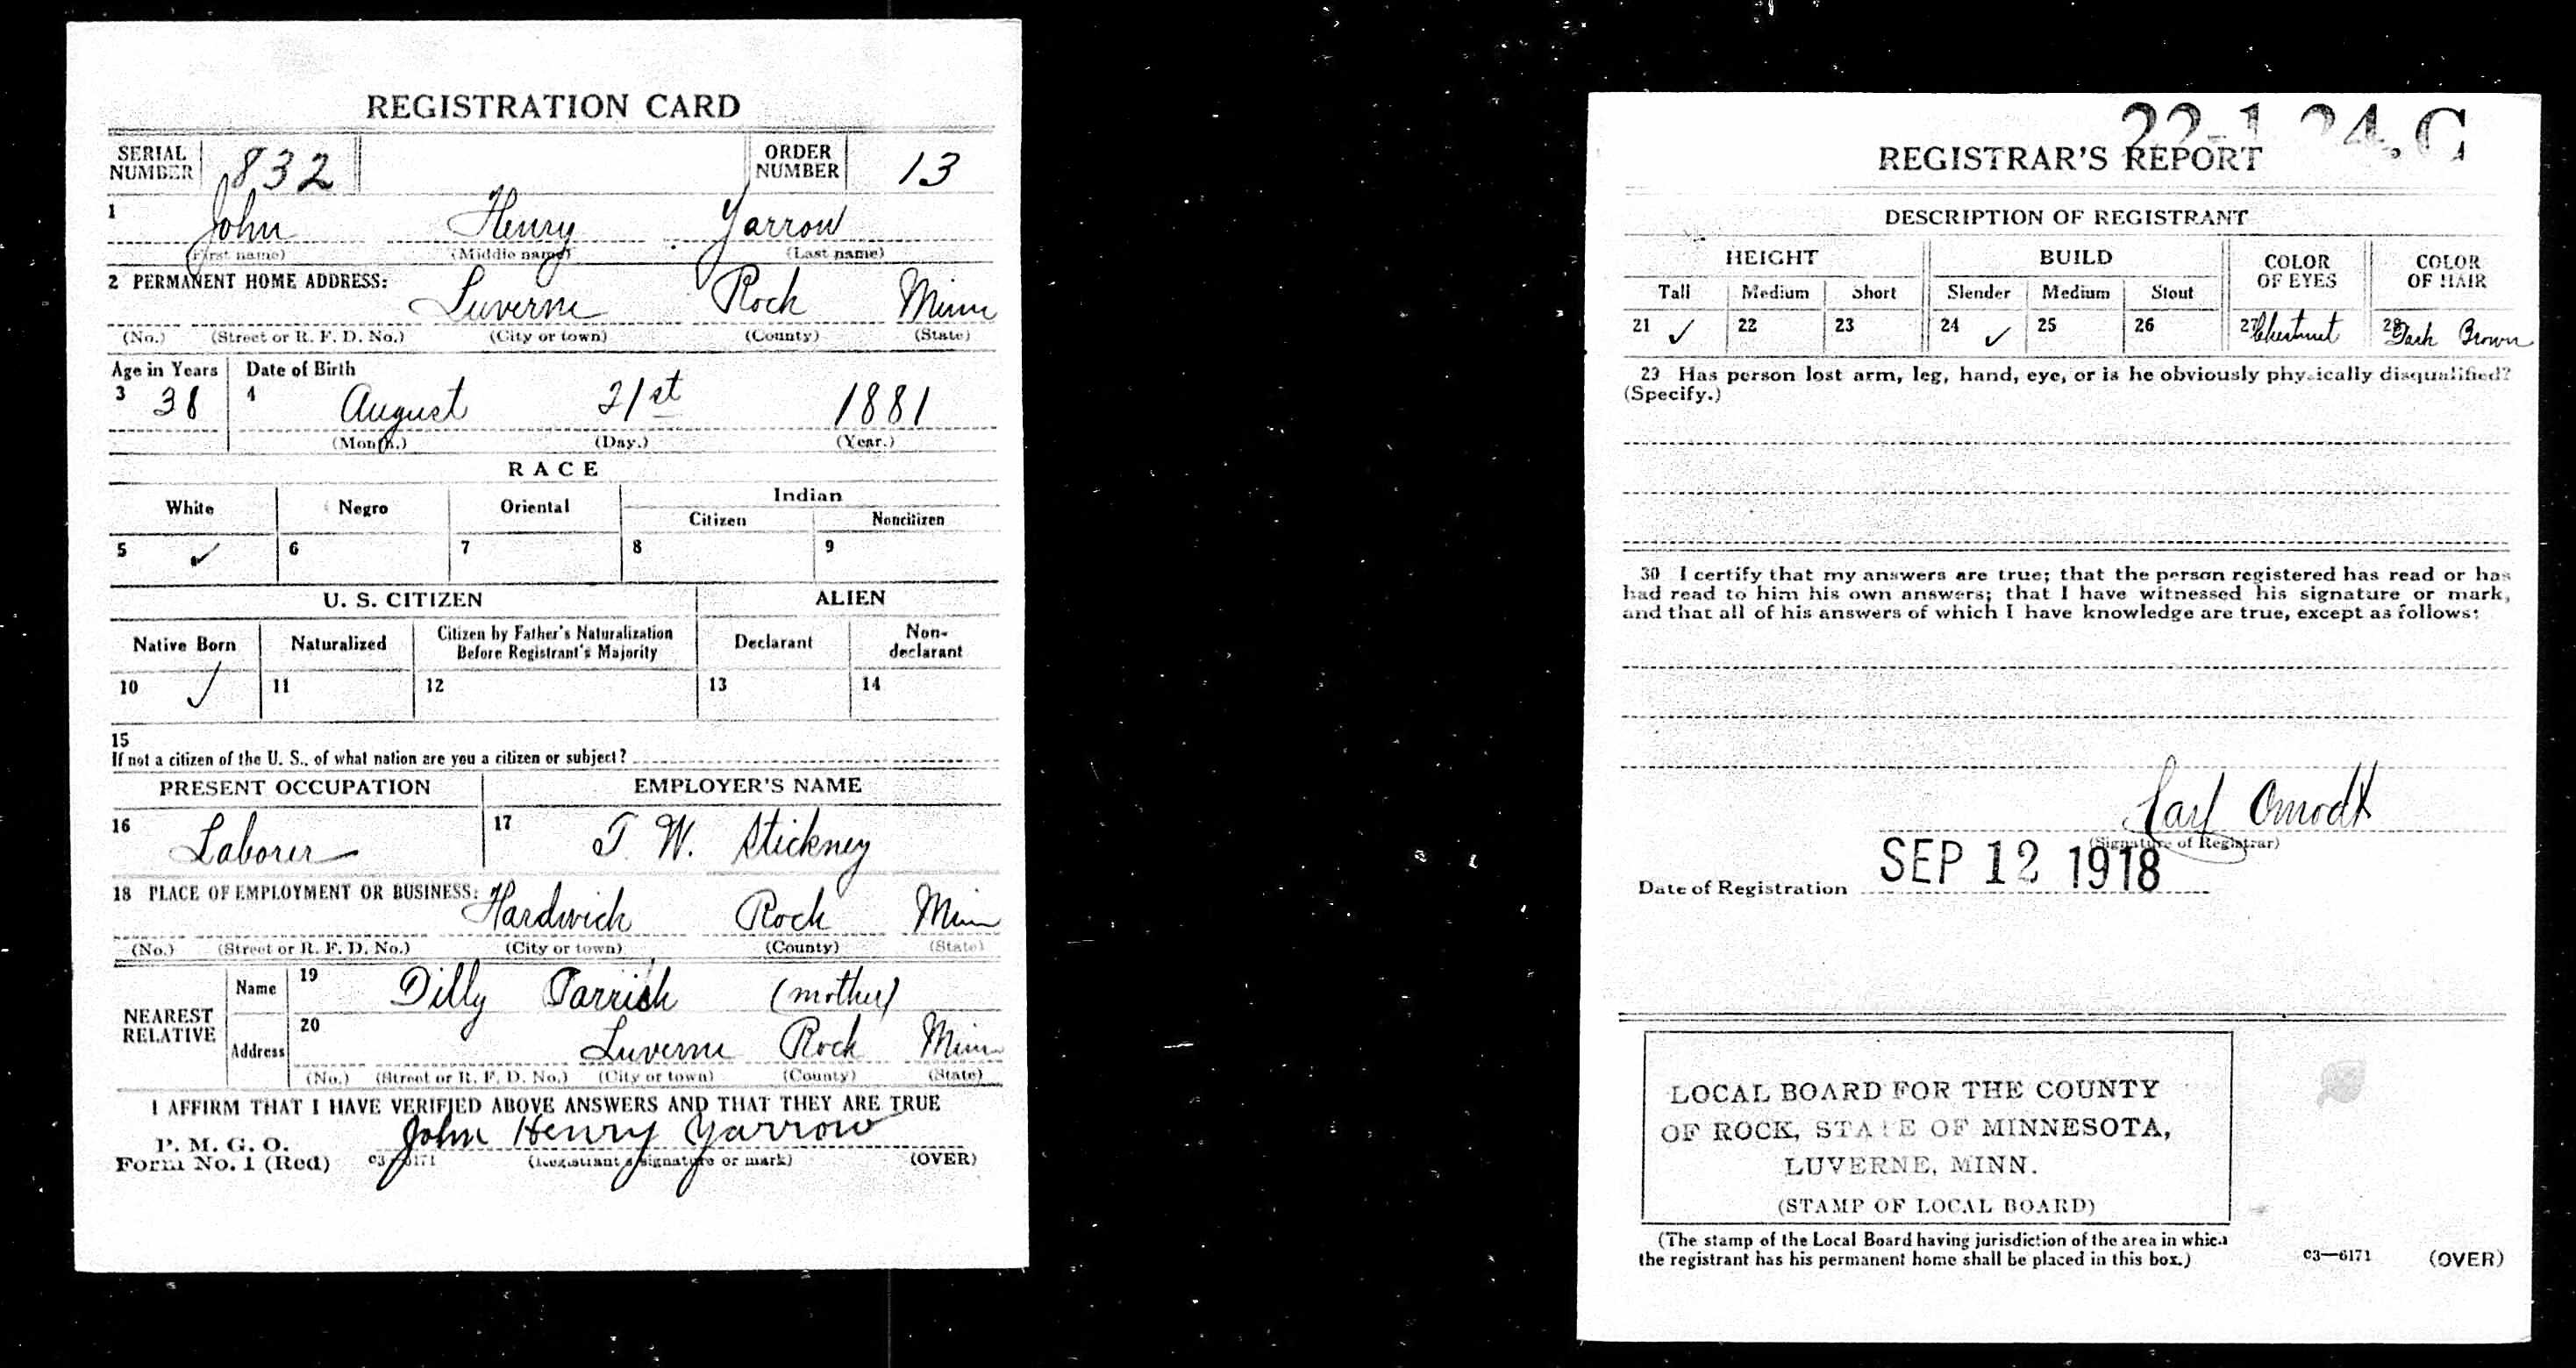 REGISTRATION CARD
SERIAL NUMBER 832 ORDER NUMBER 13
1 John Henry Yarrow
(First name) (Middle name) (Last name)
2 PERMANENT HOME ADDRESS:
Luverne Rock Minn
(No.) (Street or R. F. D. No.) (City or town) (County) (State)
Age in Years Date of Birth
3 38 4 August 21st 1881
(Month.) (Day.) (Year.)
RACE
White Negro Oriental Indian
Citizen Noncitizen
5 ✓ 6 7 8 9
U. S. CITIZEN ALIEN
Native Born Naturalized Citizen by Father's Naturalization Before Registrant's Majority Declarant Non-declarant
10 ✓ 11 12 13 14
15
If not a citizen of the U. S., of what nation are you a citizen or subject?
PRESENT OCCUPATION EMPLOYER'S NAME
16 Laborer 17 T. W. Stickney
18 PLACE OF EMPLOYMENT OR BUSINESS:
Hardwick Rock Minn
(No.) (Street or R. F. D. No.) (City or town) (County) (State)
NEAREST RELATIVE
Name 19 Dilly Parrish (mother)
Address 20 Luverne Rock Minn
(No.) (Street or R. F. D. No.) (City or town) (County) (State)
I AFFIRM THAT I HAVE VERIFIED ABOVE ANSWERS AND THAT THEY ARE TRUE
P. M. G. O.
Form No. 1 (Red) c3—6171 John Henry Yarrow
(Registrant's signature or mark) (OVER)
REGISTRAR'S REPORT
DESCRIPTION OF REGISTRANT
HEIGHT BUILD COLOR OF EYES COLOR OF HAIR
Tall Medium Short Slender Medium Stout
21 ✓ 22 23 24 ✓ 25 26 27 Chestnut 28 Dark Brown
29 Has person lost arm, leg, hand, eye, or is he obviously physically disqualified?
(Specify.)
30 I certify that my answers are true; that the person registered has read or has
had read to him his own answers; that I have witnessed his signature or mark,
and that all of his answers of which I have knowledge are true, except as follows:
Carl Omodt
(Signature of Registrar)
Date of Registration SEP 12 1918
LOCAL BOARD FOR THE COUNTY
OF ROCK, STATE OF MINNESOTA,
LUVERNE, MINN.
(STAMP OF LOCAL BOARD)
(The stamp of the Local Board having jurisdiction of the area in which
the registrant has his permanent home shall be placed in this box.)
c3—6171 (OVER)